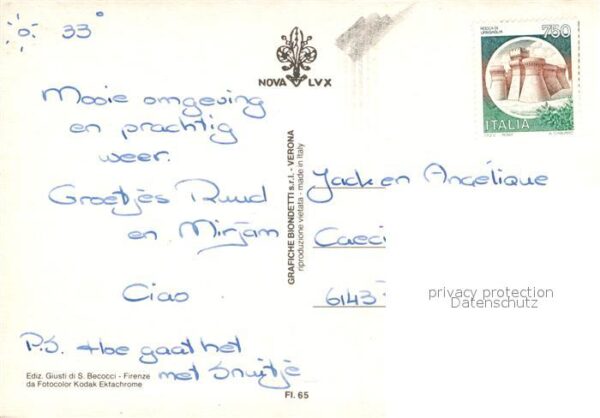 33°
Mooie omgeving
en prachtig
weer.
Groetjes Ruud
en Mirjam
Ciao
P.S. Hoe gaat het
met Snuitje
Ediz. Giusti di S. Becocci - Firenze
da Fotocolor Kodak Ektachrome
NOVA LUX
GRAFICHE BIONDETTI s.r.l. - VERONA
riproduzione vietata - made in Italy
FI. 65
ROCCA DI
URBISAGLIA
750
ITALIA
Jack en Angélique
Caeci
6143
privacy protection
Datenschutz